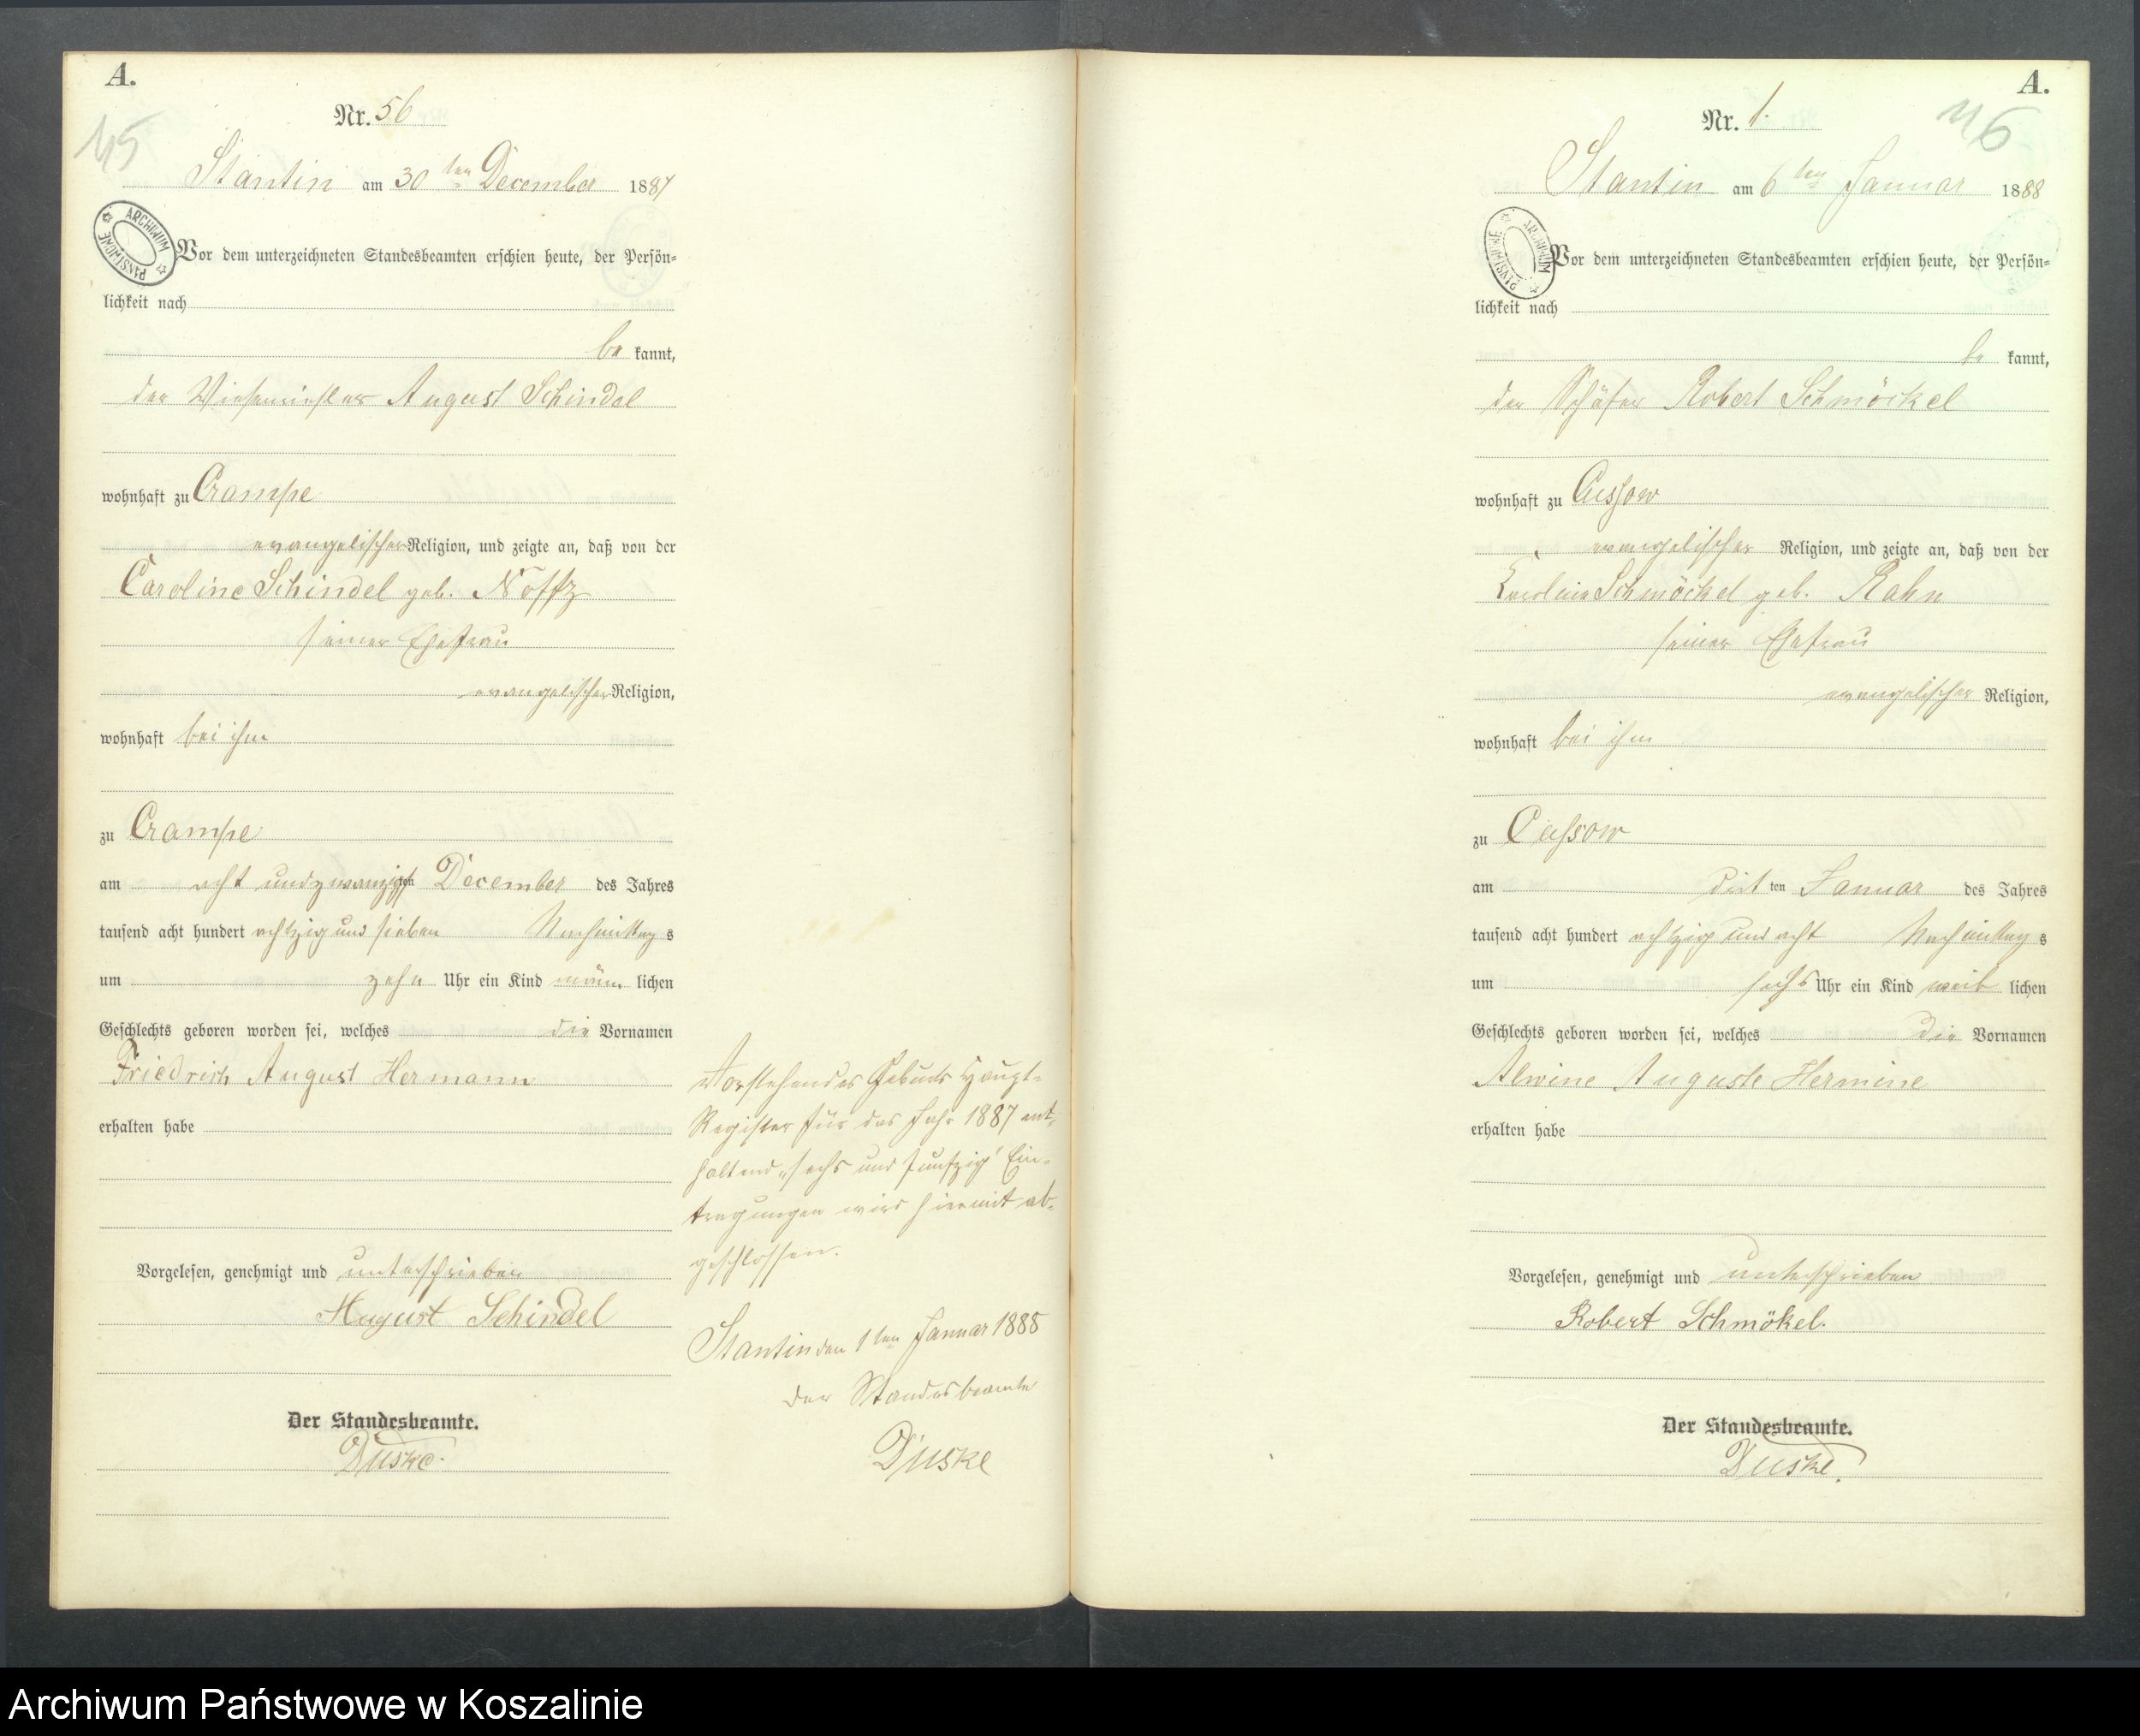 A.
45
Nr. 56
Stantin am 30 ten December 1887
ARCHIWUM PAŃSTWOWE
Vor dem unterzeichneten Standesbeamten erschien heute, der Persön-
lichkeit nach
be kannt,
der August Schindel
wohnhaft zu Crampe
evangelischer Religion, und zeigte an, daß von der
Caroline Schindel geb. Noffz
seiner Ehefrau
evangelischer Religion,
wohnhaft bei ihm
zu Crampe
am acht und zwanzigsten December des Jahres
tausend acht hundert achtzig und sieben Nachmittag s
um zehn Uhr ein Kind männ lichen
Geschlechts geboren worden sei, welches die Vornamen
Friedrich August Hermann
erhalten habe
Vorgelesen, genehmigt und unterschrieben
August Schindel
Der Standesbeamte.
Duske.
Vorstehendes Geburts Haupt-
Register für das Jahr 1887 ent-
haltend „sechs und funfzig" Ein-
tragungen wird hiermit ab-
geschlossen.
Stantin den 1 ten Januar 1888
Der Standesbeamte
Duske
A.
46
Nr. 1.
Stantin am 6 ten Januar 1888
ARCHIWUM PAŃSTWOWE
Vor dem unterzeichneten Standesbeamten erschien heute, der Persön-
lichkeit nach
be kannt,
der Schäfer Robert Schmöckel
wohnhaft zu Cussow
evangelischer Religion, und zeigte an, daß von der
Karoline Schmöckel geb. Rahn
seiner Ehefrau
evangelischer Religion,
wohnhaft bei ihm
zu Cussow
am ten Januar des Jahres
tausend acht hundert achtzig und acht Nachmittag s
um sechs Uhr ein Kind weib lichen
Geschlechts geboren worden sei, welches die Vornamen
Alwine Auguste Hermine
erhalten habe
Vorgelesen, genehmigt und unterschrieben
Robert Schmökel.
Der Standesbeamte.
Duske.
Archiwum Państwowe w Koszalinie